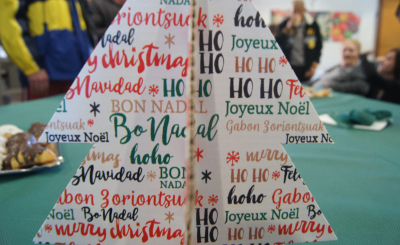 BON
NADAL
Zoriontsuak
HO
hoho
Gabon Zorion
Bo Nadal
HO
HO
Joyeux
merry christmas
HO
HO HO
Navidad
HO
HO
Fel
BON NADAL
Joyeux Noël
ontsuak
Bo Nadal
Gabon Zoriontsuak
Joyeux Noël
hoho
merry
Joyeux
Navidad
BON
NADAL
HO HO
Feli
Zoriontsuak
hoho
Gabon
Noël
Bo Nadal
HO
Joyeux Noël
merry christmas
HO
HO HO
Navidad